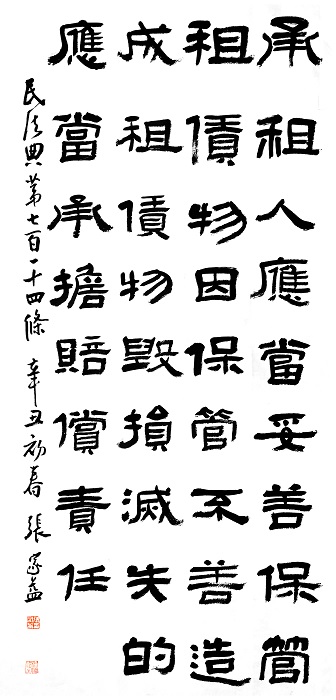 承租人應當妥善保管
租賃物因保管不善造
成租賃物毀損滅失的
應當承擔賠償責任
民法典第七百一十四條 辛丑初春 張家益